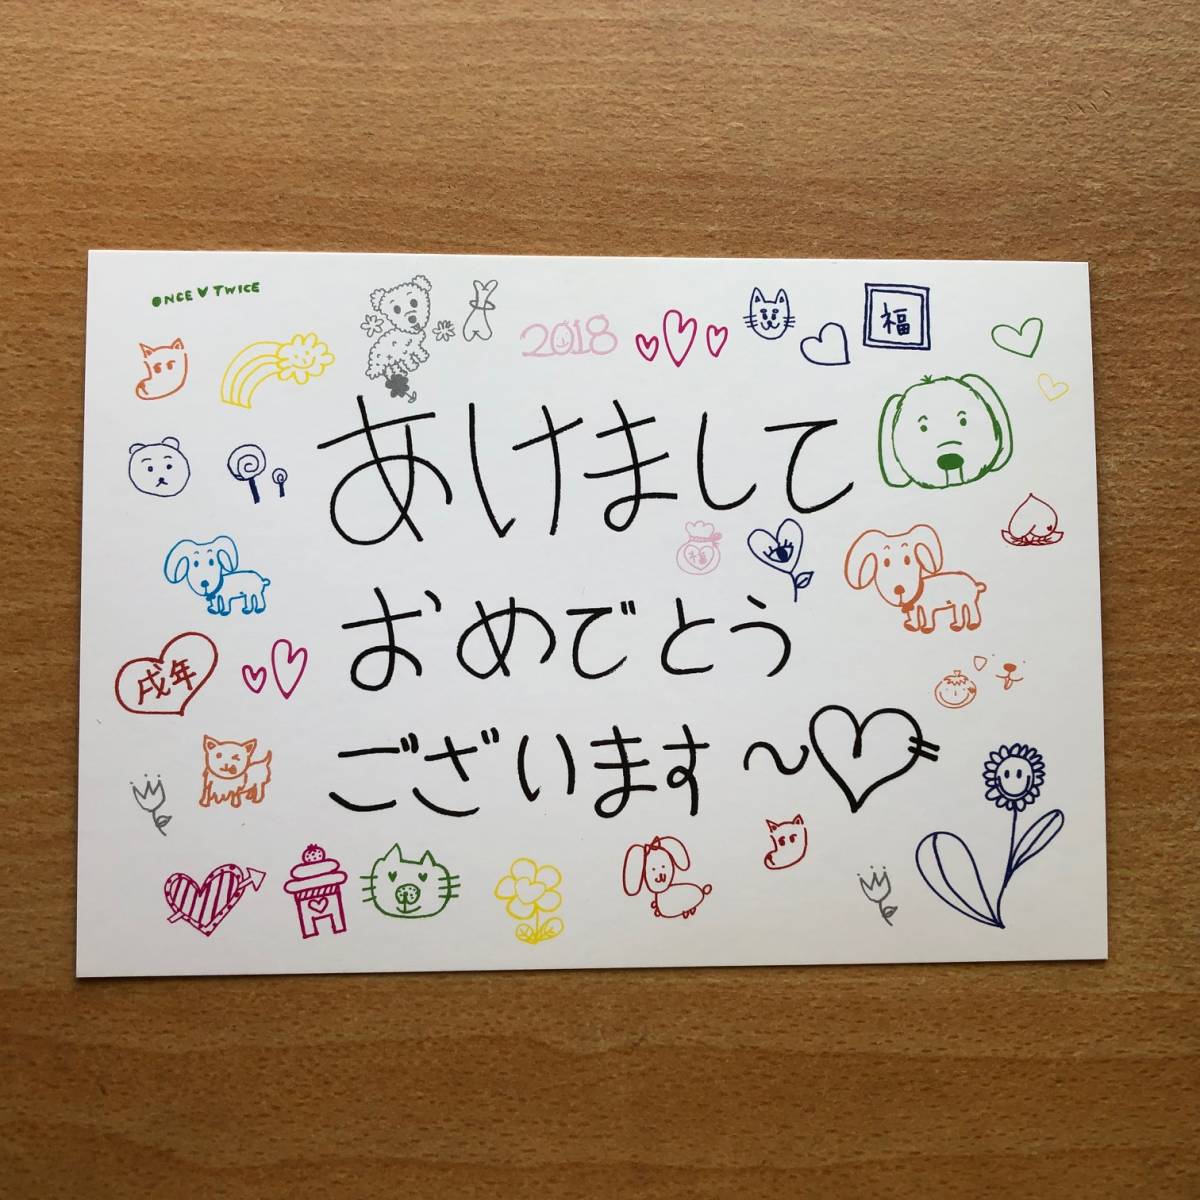 ONCE♥TWICE
2018
福
あけまして
福
おめでとう
戌年
ございます~♡